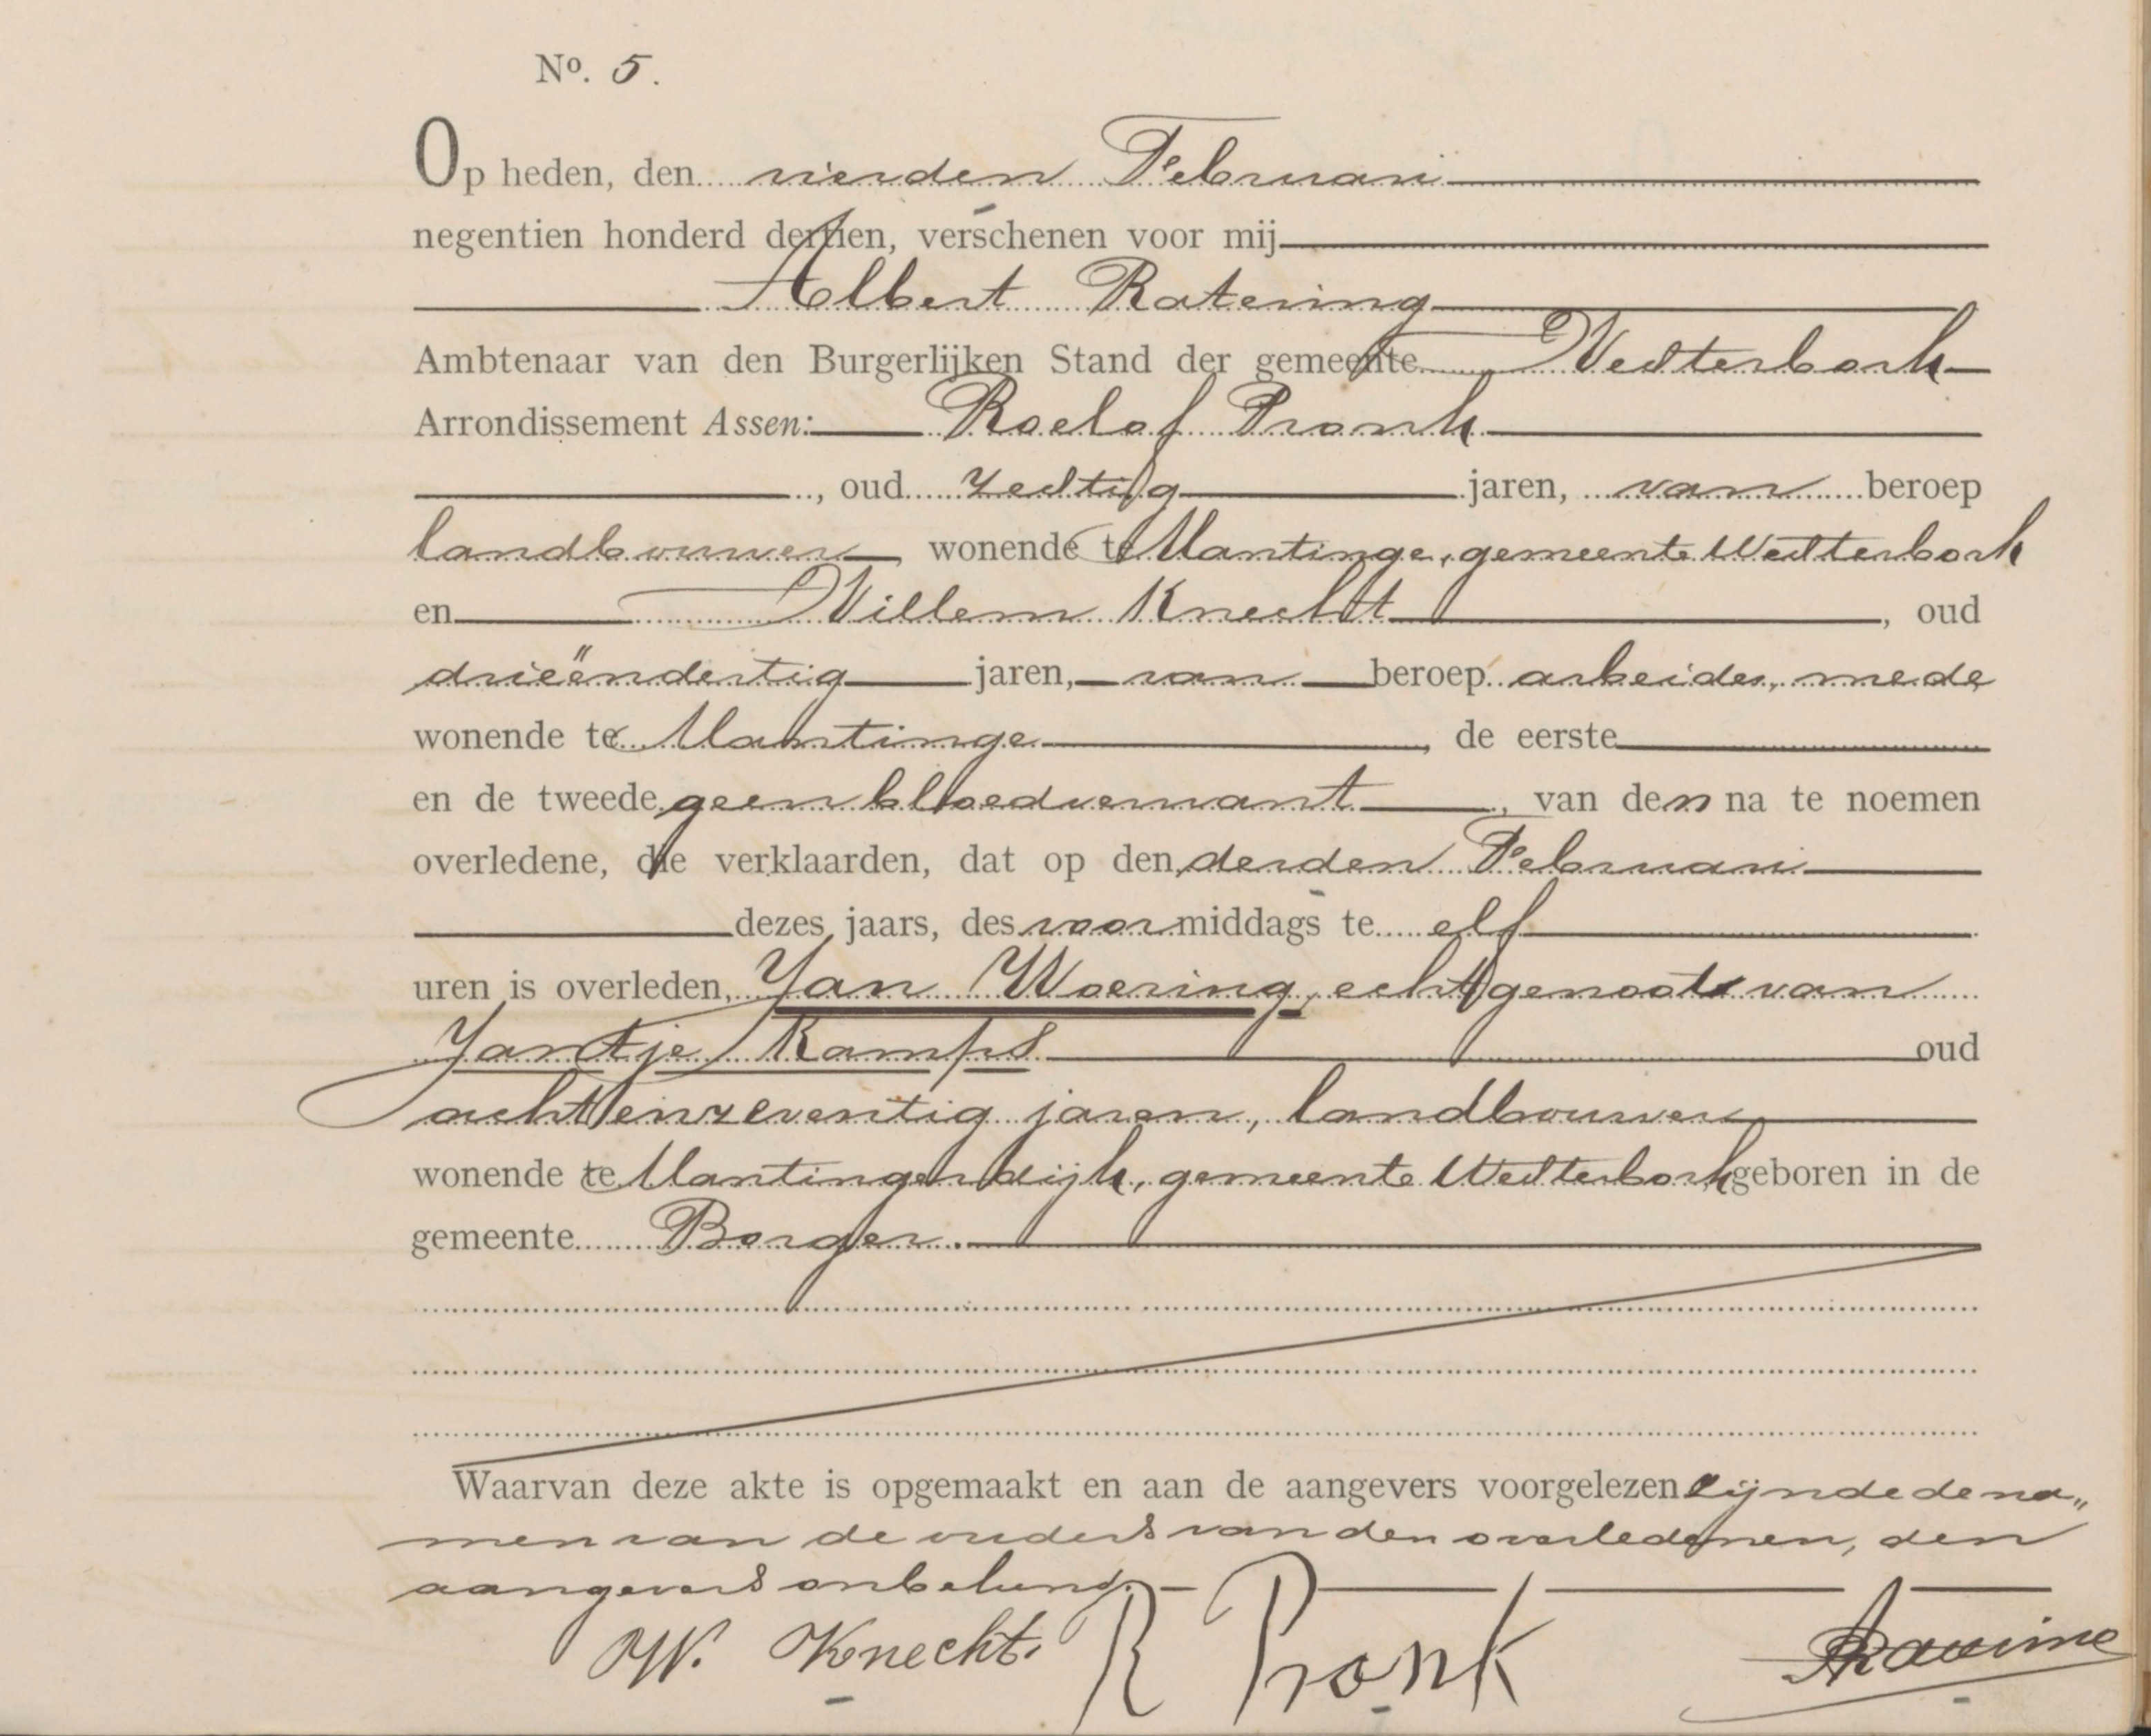 No. 5.
Op heden, den vierden Februari
negentien honderd dertien, verschenen voor mij
Albert Ratering
Ambtenaar van den Burgerlijken Stand der gemeente Westerbork
Arrondissement Assen: Roelof Pronk
, oud zestig jaren, van beroep
landbouwer wonende te Mantinge, gemeente Westerbork
en Willem Knecht, oud
drieëndertig jaren, van beroep arbeider, mede
wonende te Mantinge, de eerste
en de tweede geen bloedverwant, van den na te noemen
overledene, die verklaarden, dat op den derden Februari
dezes jaars, des voormiddags te elf
uren is overleden, Jan Woering, echtgenoot van
Jantje Kamps oud
achtenzeventig jaren, landbouwer
wonende te Mantingerdijk, gemeente Westerbork geboren in de
gemeente Borger.
Waarvan deze akte is opgemaakt en aan de aangevers voorgelezen zijnde de na„
men van de ouders van den overledenen, den
aangevers onbekend.
W. Knecht. R Pronk